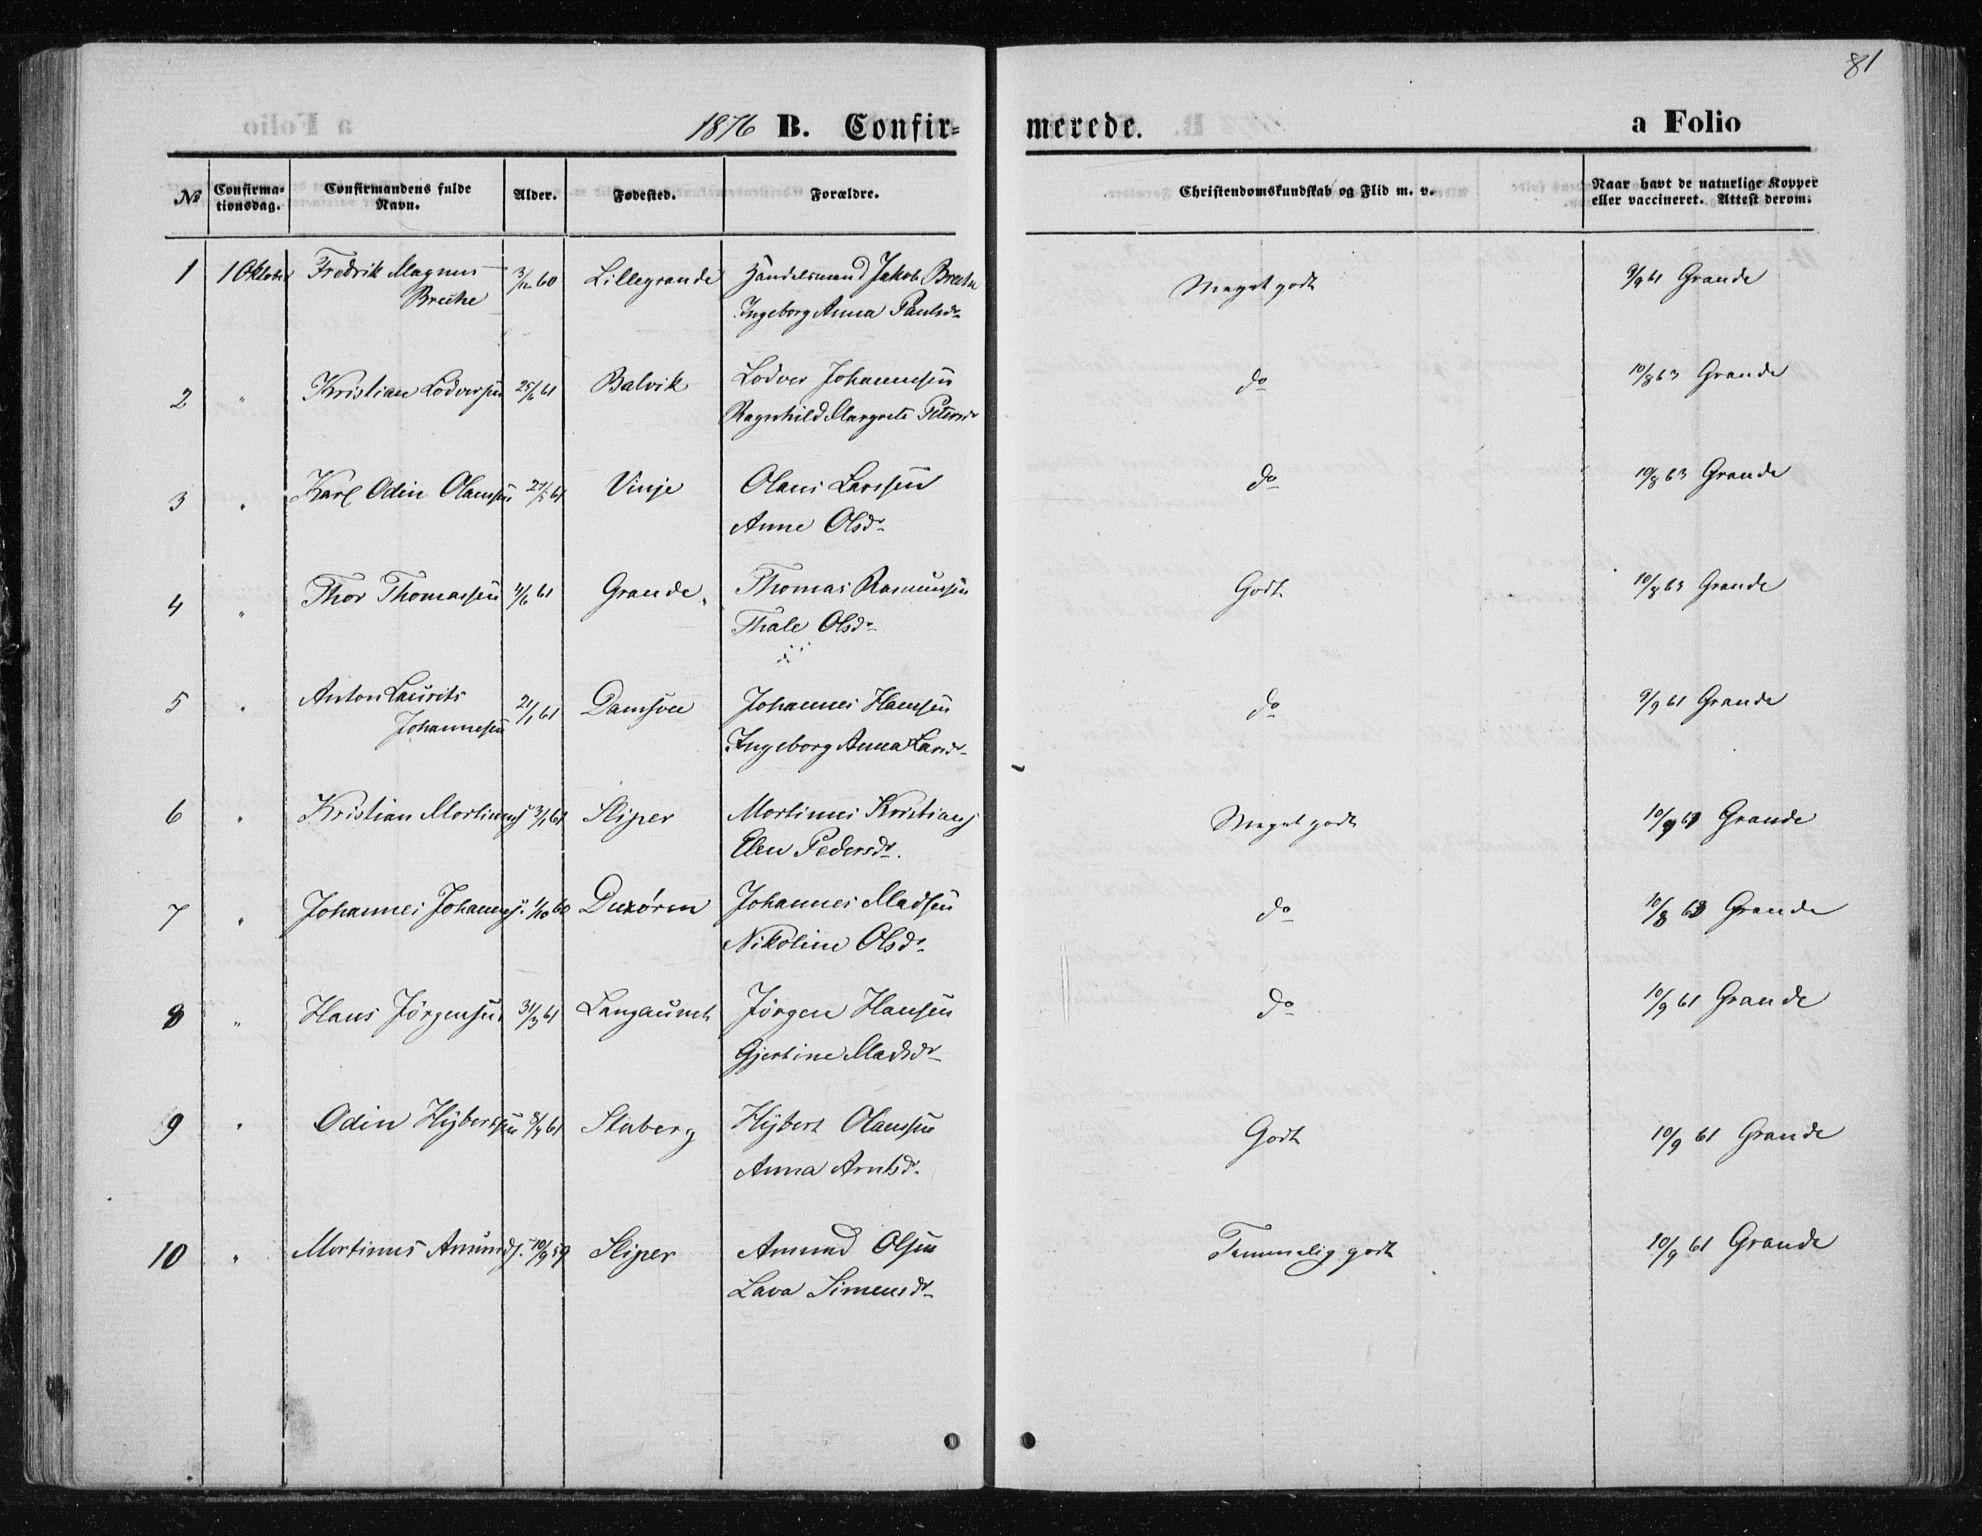 81
1876 B. Confir= merede. a Folio
№ Confirma= tionsdag. Confirmandens fulde Navn. Alder. Fødested. Forældre. Christendomskundskab og Flid m. v. Naar havt de naturlige Kopper eller vaccineret. Attest derom.
1 1 Oktober Fredrik Magnus 3/12 60 Lillegrande Handelsmand Jakob Meget godt 9/9 61 Grande
Ingeborg Anna Paulsdr
2 " Kristian Lodversen 25/6 61 Balvik Lodver Johannesen do 10/8 63 Grande
Ragnhild Margrete Petersdr
3 " Karl Odin Olaussen 61 Vinje Olaus Larssen do 10/8 63 Grande
Anne Olsdr
4 " Thor Thomassen 4/6 61 Grande. Thomas Rasmussen Godt 10/8 63 Grande
Thale Olsdr
5 " Anton Laurits 21/1 61 Damsven Johannes Hansen do 9/9 61 Grande
Johannesen Ingeborg Anna Larsdr
6 " Kristian Mortinusj 3/1 61 Sliper Mortinus Kristiansj Meget godt 10/9 61 Grande
Elen Pedersdr.
7 " Johannes Johannesj. 1/10 60 Duxøren Johannes Madsen do 10/8 63 Grande
Nikoline Olsdr
8 " Hans Jørgensen 31/3 61 Langaunet Jørgen Hansen do 10/9 61 Grande
Gjertine Madsdr
9 " Odin Hybertsen 8/4 61 Staberg Hybert Olaussen Godt 10/9 61 Grande
Anna Arntsdr.
10 " Mortinus Amundsj. 10/9 59 Sliper Amund Olsen Temmelig godt 10/9 61 Grande
Lava Simensdr